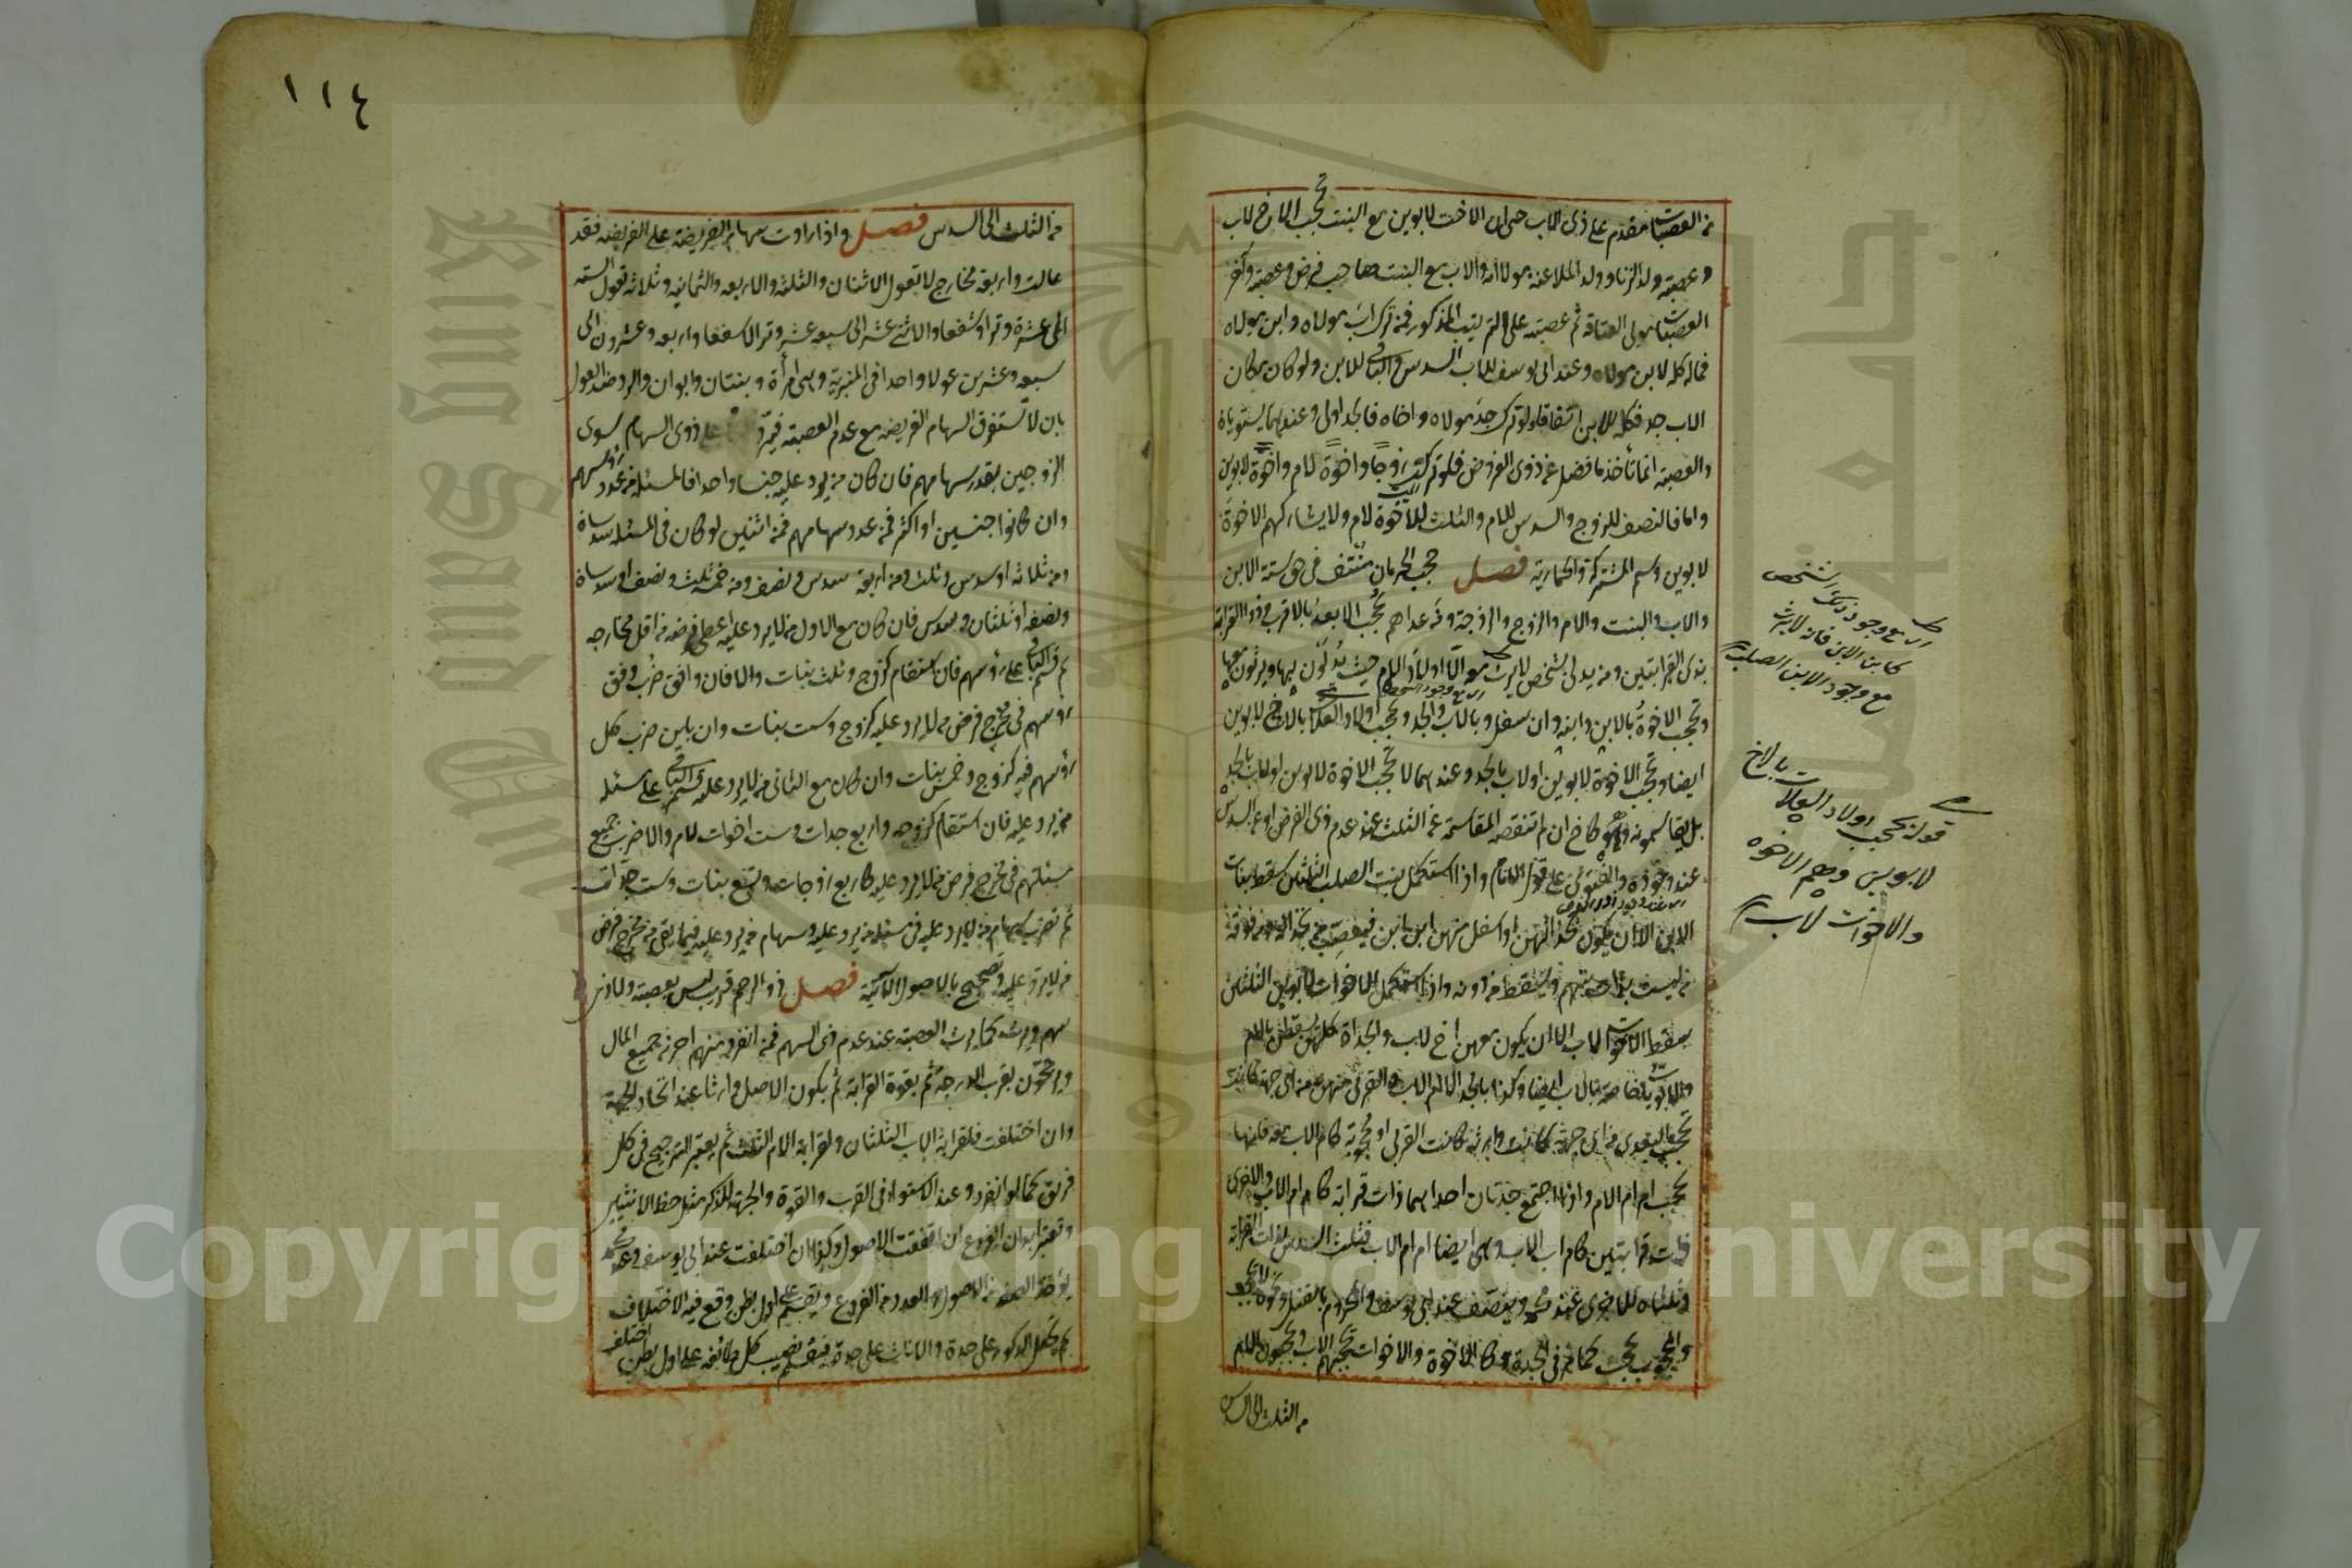 من العصبات مقدم على ذي الاب حتى ان الاخت لابوين مع البنت تحجب الاخ لاب
وعصبة ولد الزنا وولد الملاعنة مولا امه والاب مع البنت صاحب فرض وعصبة وآخر
العصبات مولى العتاقة ثم عصبته على الترتيب المذكور فمن ترك اب مولاه وابن مولاه
فماله كله لابن مولاه وعند ابي يوسف للاب السدس والباقي للابن ولو كان مكان
الاب جد فكله للابن اتفاقا ولو ترك جد مولاه واخاه فالجد اولى وعندهما يستويان
والعصبة انما تأخذ ما فضل عن ذوي الفروض فلو تركت زوجا واخوة لام واخوة لابوين
واما فالنصف للزوج والسدس للام والثلث للاخوة لام ولا يشاركهم الاخوة
لابوين وتسمى المشتركة والحمارية فصل حجب الحرمان منتف في حق ستة الابن
والاب والبنت والام والزوج والزوجة ومن عداهم يحجب الابعد بالاقرب وذو القرابة
بذي القرابتين ومن يدلي بشخص لا يرث معه الا اولاد الام حيث يدلون بها ويرثون معها
وتحجب الاخوة بالابن وابنه وان سفل وبالاب والجد وتحجب اولاد العلات بالاخ لابوين
ايضا وتحجب الاخوة لابوين او لاب بالجد وعندهما لا تحجب الاخوة لابوين او لاب بالجد
بل يقاسمونه وهو كاخ ان لم تنقصه المقاسمة عن الثلث عند عدم ذي الفرض او عن السدس
عند وجوده والفتوى على قول الامام واذا استكمل بنت الصلب الثلثين سقط بنات
الابن الا ان يكون بحذائهن او اسفل منهن ابن ابن فيعصب من بحذائه ومن فوقه
من ليست بذات سهم ويسقط من دونه واذا استكمل الاخوات لابوين الثلثين
سقط الاخوات لاب الا ان يكون معهن اخ لاب والجدات كلهن يسقطن بالام
والابويات خاصة بالاب ايضا وكذا بالجد الا ام الاب والقربى منهن من اي جهة كانت
تحجب البعدى من اي جهة كانت وارثة كانت القربى او محجوبة كام الاب معه فانها
تحجب ام ام الام واذا اجتمع جدتان احداهما ذات قرابة كام ام الاب والاخرى
ذات قرابتين كام اب الاب وهي ايضا ام ام الام فثلث السدس لذات القرابة
وثلثاه للاخرى عند محمد وينصف عند ابي يوسف والمحروم بالقتل ونحوه لا يحجب
والمحجوب يحجب كما مر في الجدة وكالاخوة والاخوات يحجبهم الاب ويحجبون الام
من الثلث الى السدس
اي مع وجود ذلك الشخص
كابن الابن فانه لا يرث
مع وجود الابن الصلب
قوله تحجب اولاد العلات بالاخ
لابوين وهم الاخوة
والاخوات لاب
١١٤
من الثلث الى السدس فصل واذا زادت سهام الفريضة على الفريضة فقد
عالت واربعة مخارج لا تعول الاثنان والثلثة والاربعة والثمانية وثلاثة تعول الستة
الى عشرة وترا وشفعا والاثنى عشر الى سبعة عشر وترا لا شفعا واربعة وعشرون الى
سبعة وعشرين عولا واحدا في المنبرية وهي امرأة وبنتان وابوان والرد ضد العول
بان لا تستغرق السهام الفريضة مع عدم العصبة فيرد على ذوي السهام سوى
الزوجين بقدر سهامهم فان كان من يرد عليه جنسا واحدا فالمسئلة من عدد رؤسهم
وان كانوا جنسين او اكثر فمن عدد سهامهم فمن اثنين لو كان في المسئلة سدسان
ومن ثلاثة لو سدس وثلث ومن اربعة سدس ونصف ومن خمسة ثلث ونصف او سدسان
ونصف او ثلثان وسدس فان كان مع الاول من لا يرد عليه اعطي فرضه من اقل مخارجه
ثم قسم الباقي على رؤسهم فان استقام كزوج وثلث بنات والا فان وافق ضرب وفق
رؤسهم في مخرج فرض من لا يرد عليه كزوج وست بنات وان باين ضرب كل
رؤسهم فيه كزوج وخمس بنات وان كان مع الثاني من لا يرد عليه قسم الباقي على مسئلة
من يرد عليه فان استقام كزوجه واربع جدات وست اخوات لام والا ضرب جميع
مسئلتهم في مخرج فرض من لا يرد عليه كاربع زوجات وتسع بنات وست جدات
ثم تضرب سهام من لا يرد عليه في مسئلة من يرد عليه وسهام من يرد عليه فيما بقي من مخرج فرض
من لا يرد عليه وتصحح بالاصول الآتية فصل ذو الرحم قريب ليس بعصبة ولا ذي
سهم ويرث كما يرث العصبة عند عدم ذي السهم فمن انفرد منهم احرز جميع المال
ويرجحون بقرب الدرجة ثم بقوة القرابة ثم بكون الاصل وارثا عند اتحاد الجهة
وان اختلفت فلقرابة الاب الثلثان ولقرابة الام الثلث ثم يعتبر الترجيح في كل
فريق كما لو انفرد وعند الاستواء في القرب والقوة والجهة للذكر مثل حظ الانثيين
وتعتبر ابدان الفروع ان اتفقت الاصول وكذا ان اختلفت عند ابي يوسف وعند محمد
تؤخذ الصفة من الاصول والعدد من الفروع ويقسم على اول بطن وقع فيه الاختلاف
ثم يجعل الذكور على حدة والاناث على حدة فيقسم نصيب كل طائفة على اول بطن اختلف